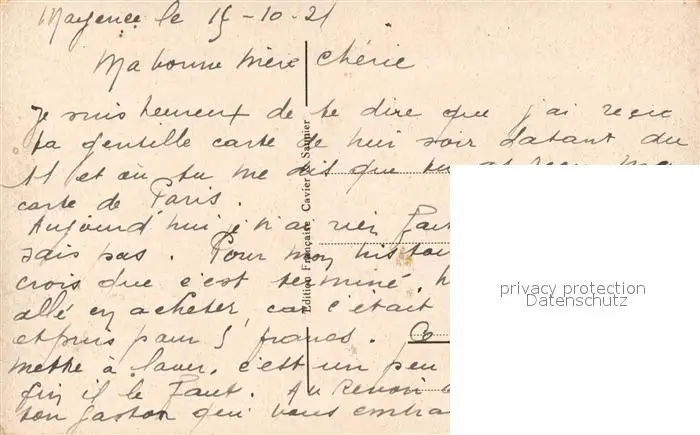 Mayence le 15-10-21
Ma bonne mère chérie
Je suis heureux de te dire que j'ai reçu
ta gentille carte de hier soir datant du
11 et où tu me dis que tu as reçu ma
carte de Paris.
Aujourd'hui je n'ai rien
sais pas. Pour mon
crois que c'est terminé.
allé en acheter, car c'était
et puis pour 5 francs.
mettre à laver, c'est un peu
fin il le faut. Au Revoir
ton gaston qui vous
Edition Française Cavier & Saunier
privacy protection
Datenschutz